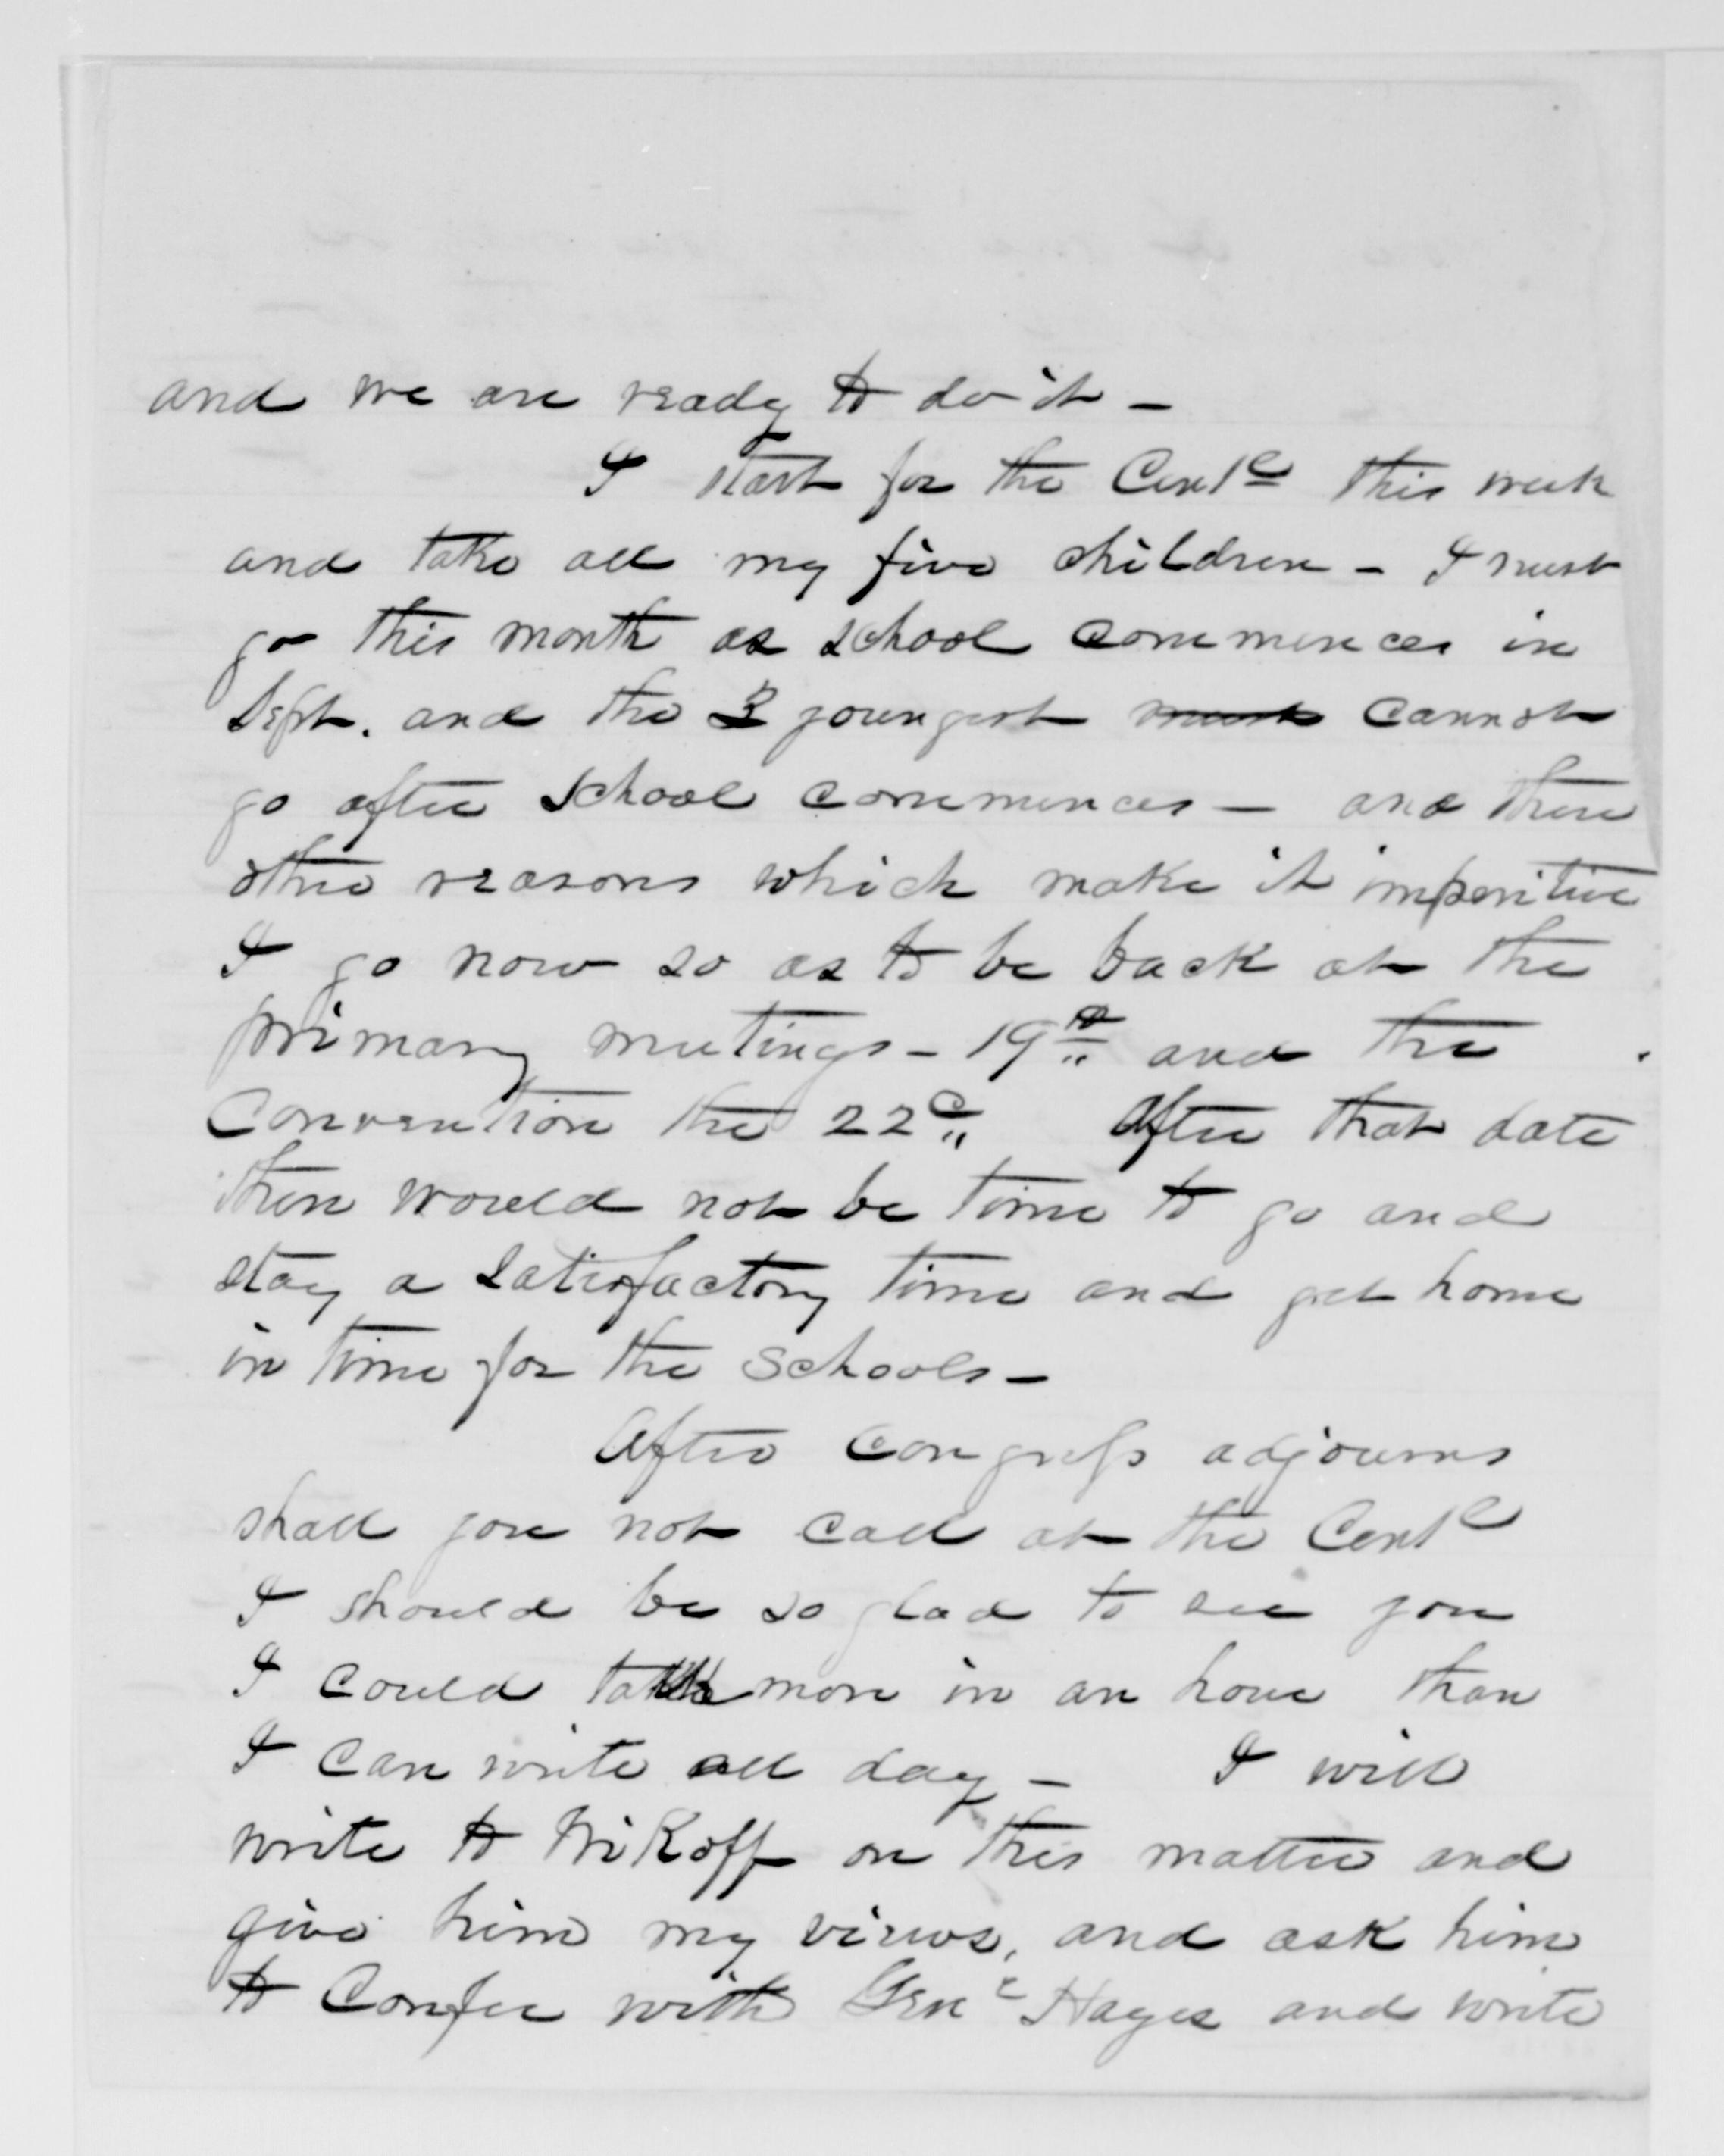 and we are ready to do it -
I start for the Centl this week
and take all my five children - I must
go this month as school commences in
Sept. and the 3 youngest must cannot
go after school commences - and there
other reasons which make it imperitive
I go now so as to be back at the
primary meetings - 19th and the
Convention the 22d After that date
there would not be time to go and
stay a satisfactory time and get home
in time for the schools -
After Congress adjourns
shall you not call at the Centl
I should be so glad to see you
I could talk more in an hour than
I can write all day - I will
write to Wikoff on this matter and
give him my views, and ask him
to Confer with Genl Hayes and write